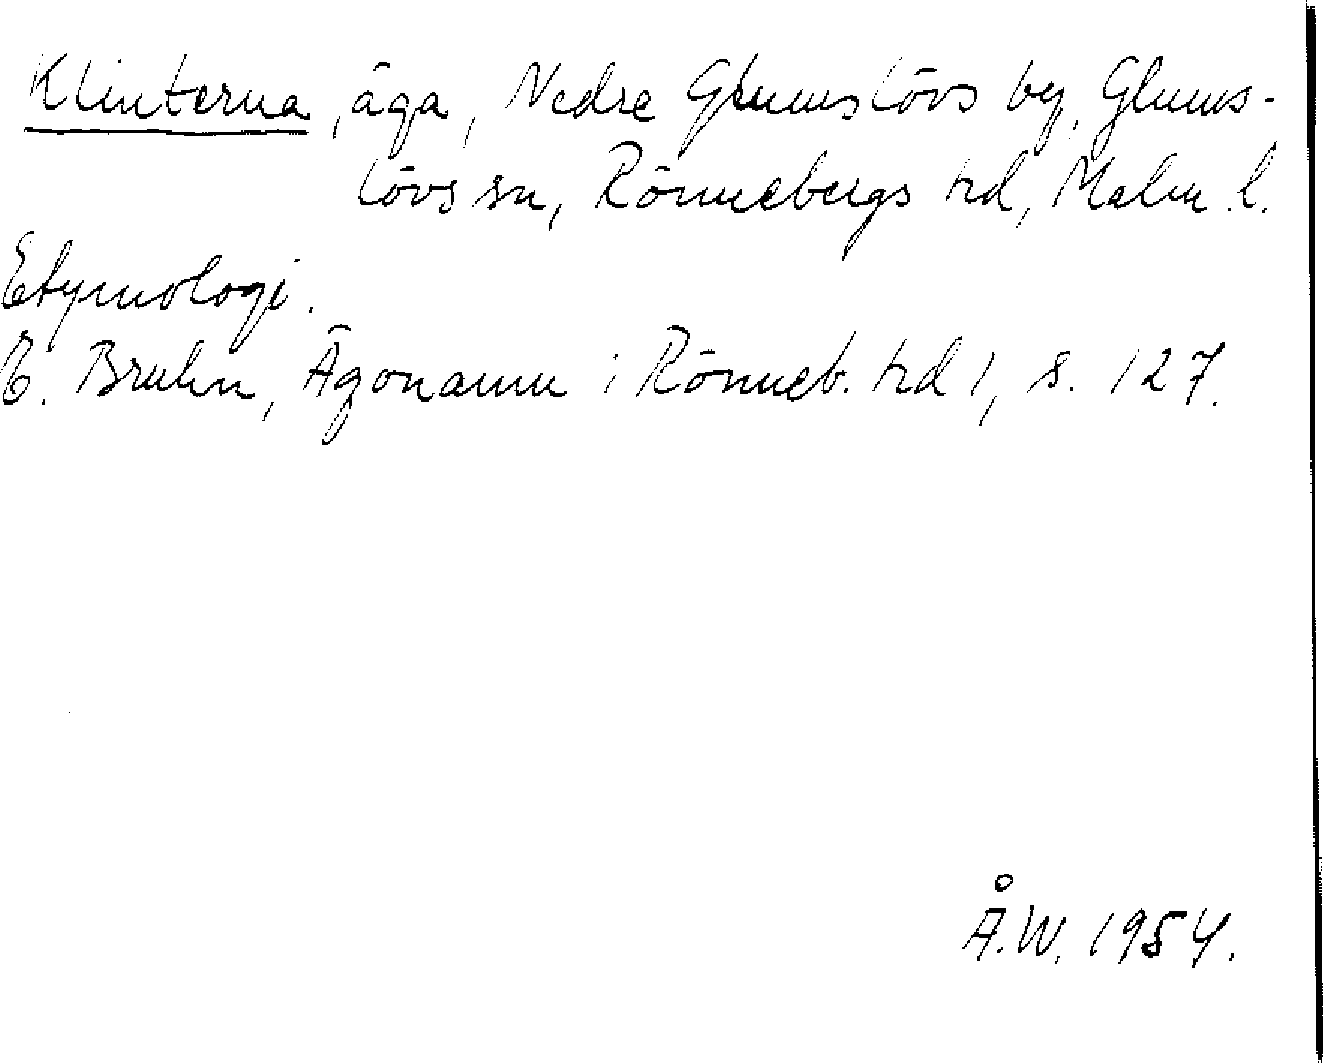 Klinterna, äga, Nedre Glumslövs by, Glums-
lövs sn, Rönnebergs hd, Malm. l.
Etymologi.
E. Bruhn, Ägonamn i Rönneb. hd 1, s. 127.
Å.W. 1954.